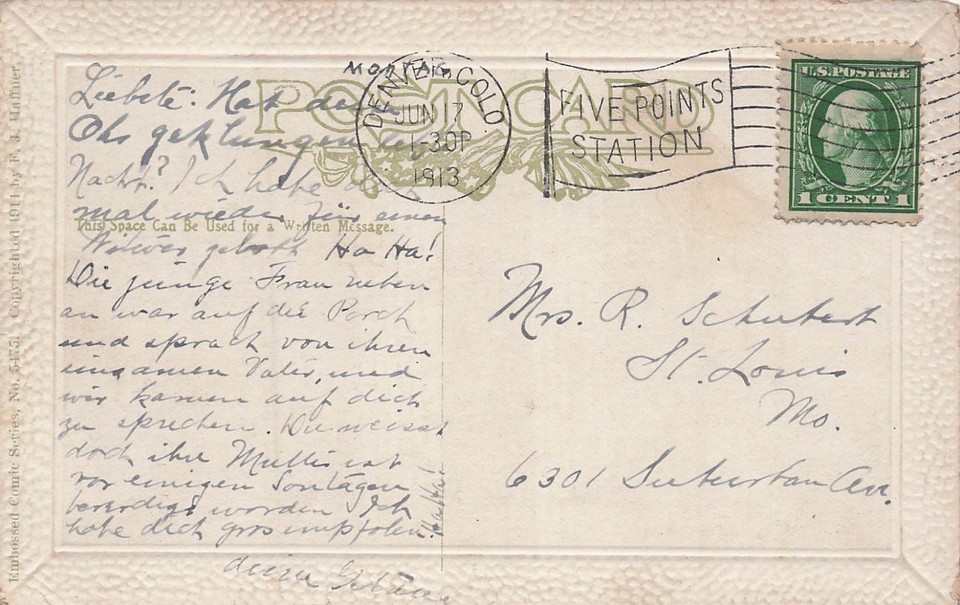 Embossed Comic Series, No. 5475. Copyrighted 1911 by F. J. Haffner.
POST CARD
This Space Can Be Used for a Written Message.
Montag
DENVER, COLO.
JUN 17
1-30P
1913
FIVE POINTS
STATION
U.S. POSTAGE
1 CENT 1
Liebste: Hat de
Ohr geklungen
Nacht? Ich habe dich
mal wieder für einen
Witwer gelobt Ha Ha!
Die junge Frau neben
an war auf die Porch
und sprach von ihren
einsamen Vater, und
wir kamen auf dich
zu sprechen. Du weisst
doch ihre Mutter ist
vor einigen Sontagen
beerdigt worden Ich
habe dich gros empfolen.
Ha Ha!
deine
Mrs. R. Schubert
St. Louis
Mo.
6301 Suburban Av.